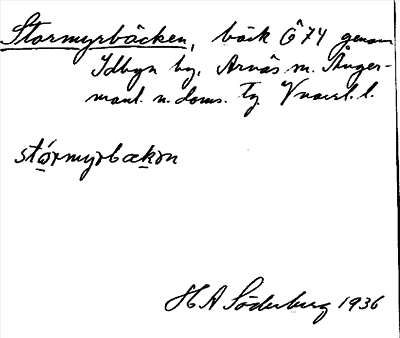 Stormyrbäcken, bäck Ö74 genom
Idbyn by, Arnäs sn. Ånger-
manl. n. doms. tg Vnorrl. l.
stórmyrbækɔn
H A Söderberg 1936